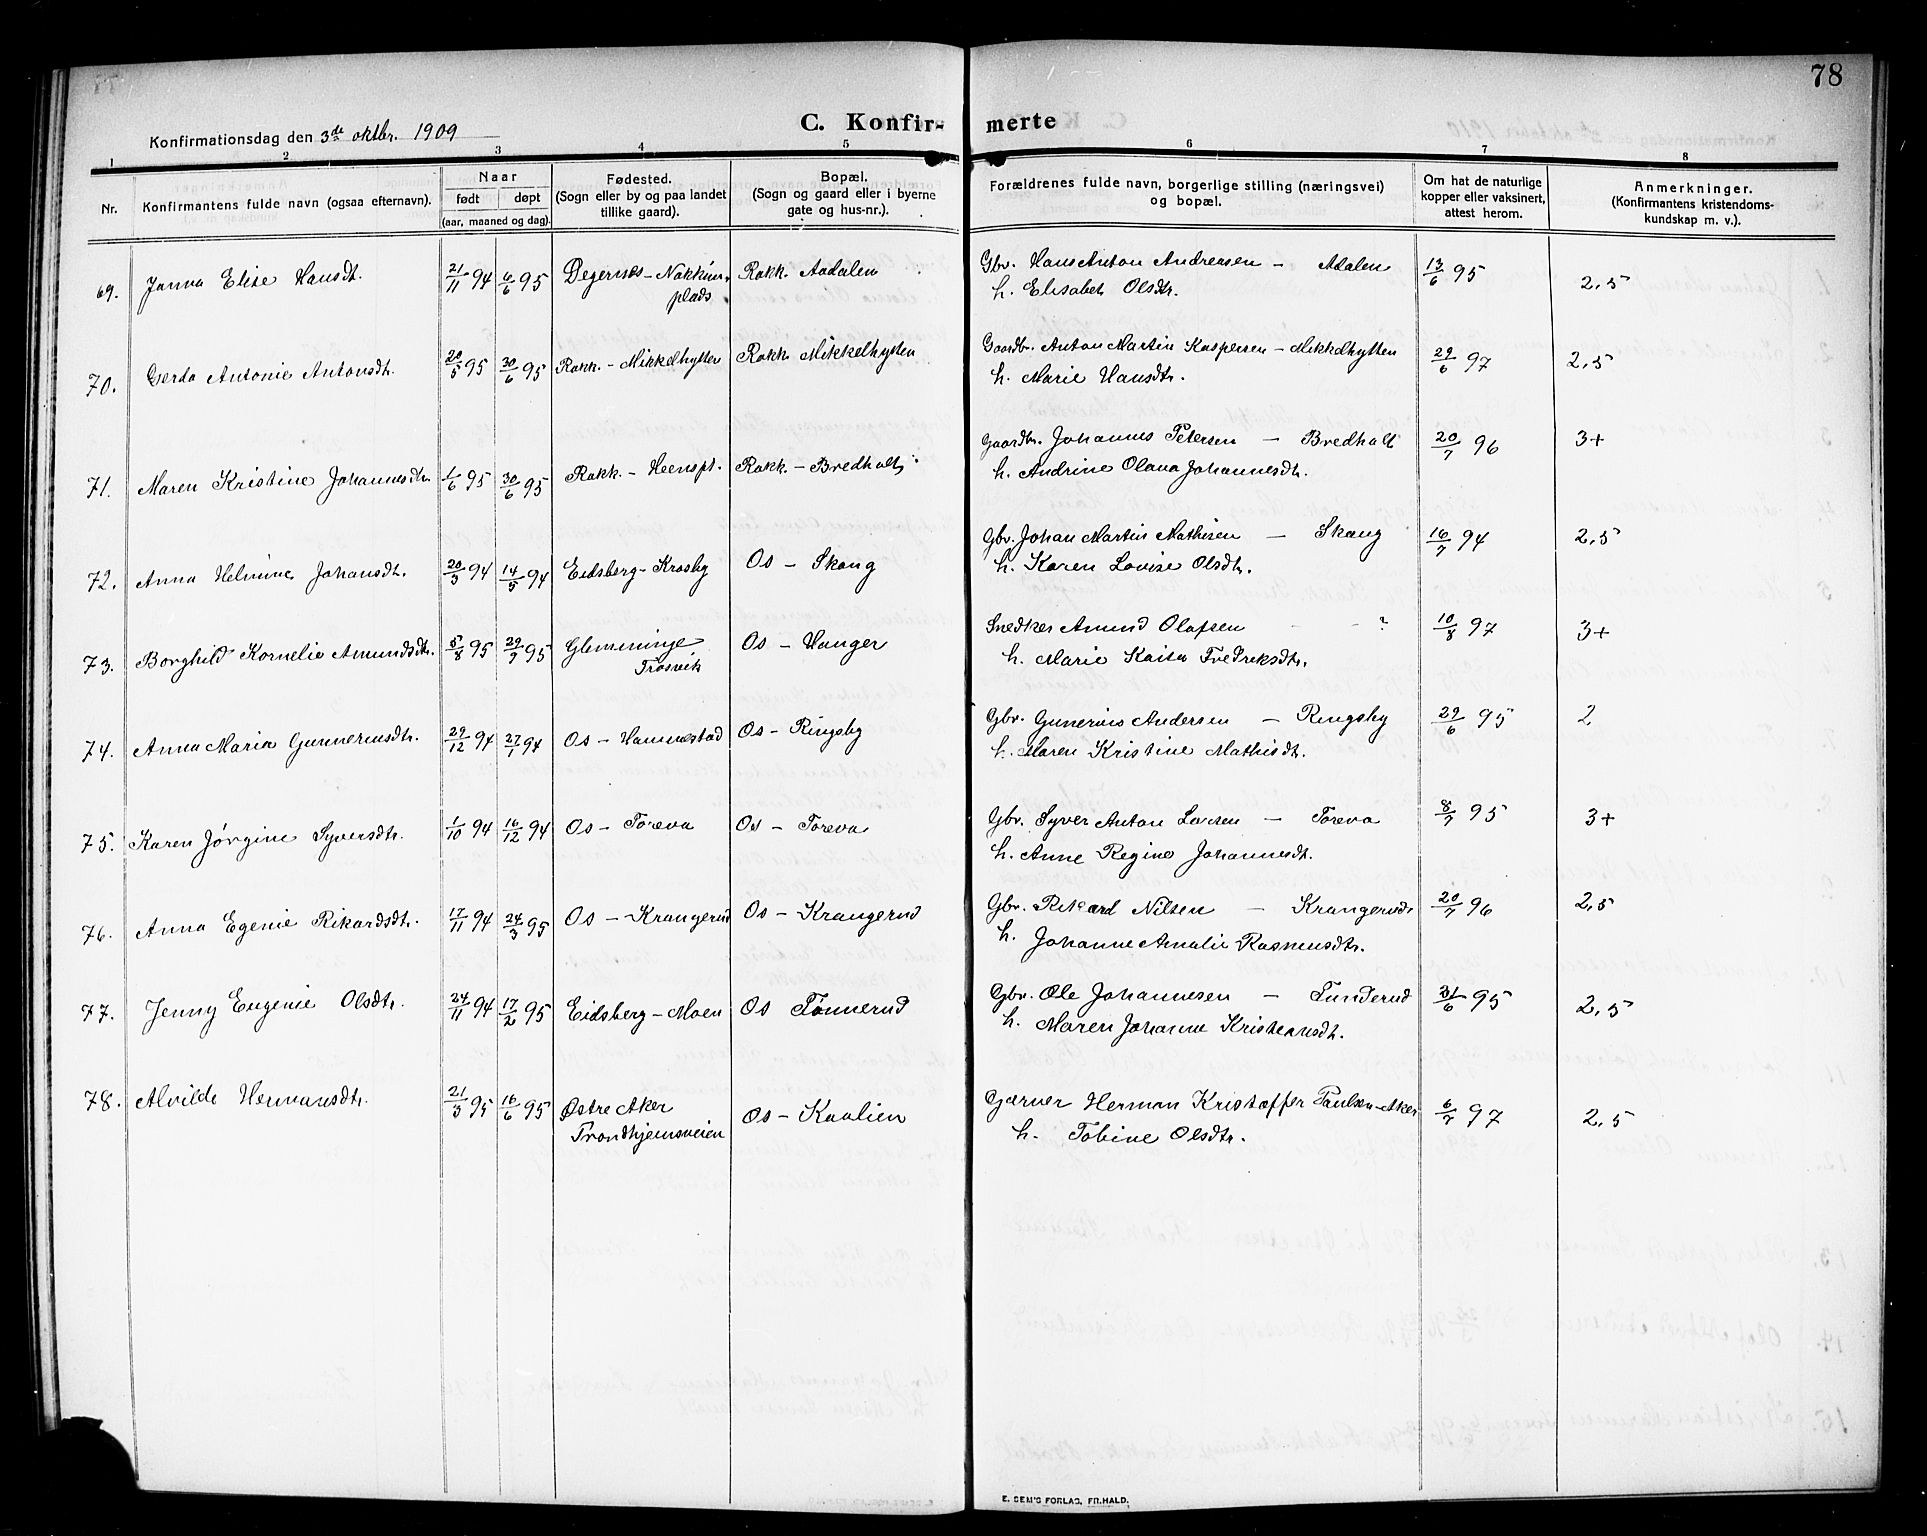 78
Konfirmationsdag den 3de oktbr. 1909
C. Konfir- merte
1 2 3 4 5 6 7 8
Nr.
Konfirmantens fulde navn (ogsaa efternavn).
Naar
født døpt
(aar, maaned og dag).
Fødested.
(Sogn eller by og paa landet
tillike gaard).
Bopæl.
(Sogn og gaard eller i byerne
gate og hus-nr.).
Forældrenes fulde navn, borgerlige stilling (næringsvei)
og bopæl.
Om hat de naturlige
kopper eller vaksinert,
attest herom.
Anmerkninger.
(Konfirmantens kristendoms-
kundskap m. v.).
69. Janna Elise Hansdt. 21/11 94 6/6 95 Degernes - Nakkim- Rakk. Aadalen Gbr. Hans Anton Andreasen - Adalen 13/6 95 2,5
plads h. Elisabet Olsdtr.
70. Gerda Antonie Antonsdt. 20/5 95 30/6 95 Rakk. - Mikkelhytten Rakk Mikkelhytten Gaardbr. Anton Martin Kaspersen - Mikkelhytten 29/6 97 2,5
h. Marie Hansdtr.
71. Maren Kristine Johannesdtr. 1/6 95 30/6 95 Rakk. - Heenspl. Rakk. - Bredholt Gaardbr. Johannes Petersen - Bredholt 20/7 96 3+
h. Andrine Olava Johannesdtr.
72. Anna Helmine Johansdt. 20/3 94 14/5 94 Eidsberg - Krosby Os - Skaug Gbr. Johan Martin Mathisen - Skaug 16/7 94 2,5
h. Karen Lovise Olsdtr.
73. Borghild Kornelie Amundsdtr. 5/8 95 29/9 95 Glemminge Os - Hanger Snedker Amund Olafsen - - ? 10/8 97 3+
Trosvik h. Marie Kaisa Fredriksdtr.
74. Anna Maria Gunneriusdtr. 29/12 94 27/1 94 Os - Hannestad Os - Ringsby Gbr. Gunerius Andersen - Ringsby 29/6 95 2
h. Maren Kristine Mathisdtr.
75. Karen Jørgine Syversdtr. 1/10 94 16/12 94 Os - Toreva Os - Toreva Gbr. Syver Anton Larsen - Toreva 8/7 95 3+
h. Anne Regine Johannesdt.
76. Anna Egenie Rikardsdtr. 17/11 94 24/3 95 Os - Krangerud Os - Krangerud Gbr. Rikard Nilsen - Krangerud 20/7 96 2,5
h. Johanne Amalie Rasmusdtr.
77. Jenny Eugenie Olsdtr. 24/11 94 17/2 95 Eidsberg - Moen Os Tønnerud Gbr. Ole Johannesen - Tunderud 31/6 95 2,5
h. Maren Johanne Kristiansdt.
78. Alvilde Hermansdtr. 21/3 95 16/6 95 Østre Aker Os - Kaalien Gærner Herman Kristoffer Paulsen - Aker 6/7 97 2,5
Trondhjemsveien h. Tobine Olsdtr.
E. SEM'S FORLAG, FR.HALD.